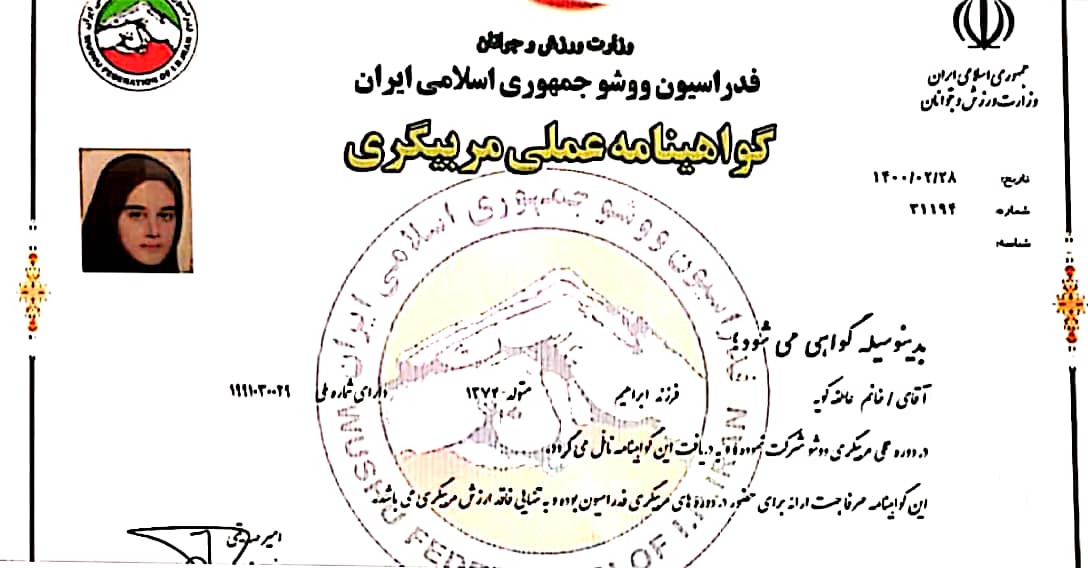 وزارت ورزش و جوانان
فدراسیون ووشو جمهوری اسلامی ایران
گواهینامه عملی مربیگری
جمهوری اسلامی ایران
وزارت ورزش و جوانان
تاریخ: ۱۴۰۰/۰۲/۲۸
شماره: ۳۱۱۹۴
شناسه:
بدینوسیله گواهی می شود؛
آقای / خانم عاطفه کویه فرزند ابراهیم متولد ۱۳۷۲ دارای شماره ملی
در دوره عملی مربیگری ووشو شرکت نموده و به دریافت این گواهینامه نائل می گردد.
این گواهینامه صرفا جهت ارائه برای حضور در دوره های مربیگری فدراسیون بوده و به تنهایی فاقد ارزش مربیگری می باشد.
فدراسیون ووشو جمهوری اسلامی ایران
WUSHU FEDERATION OF I.R.IRAN
WUSHU FEDERATION OF I.R.IRAN